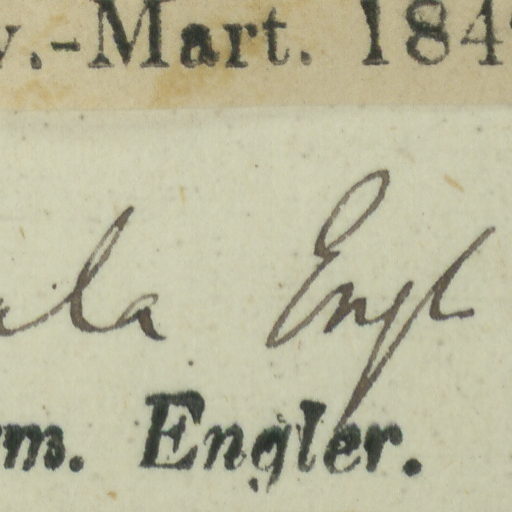 v.-Mart. 184
ala Engl
rm. Engler.